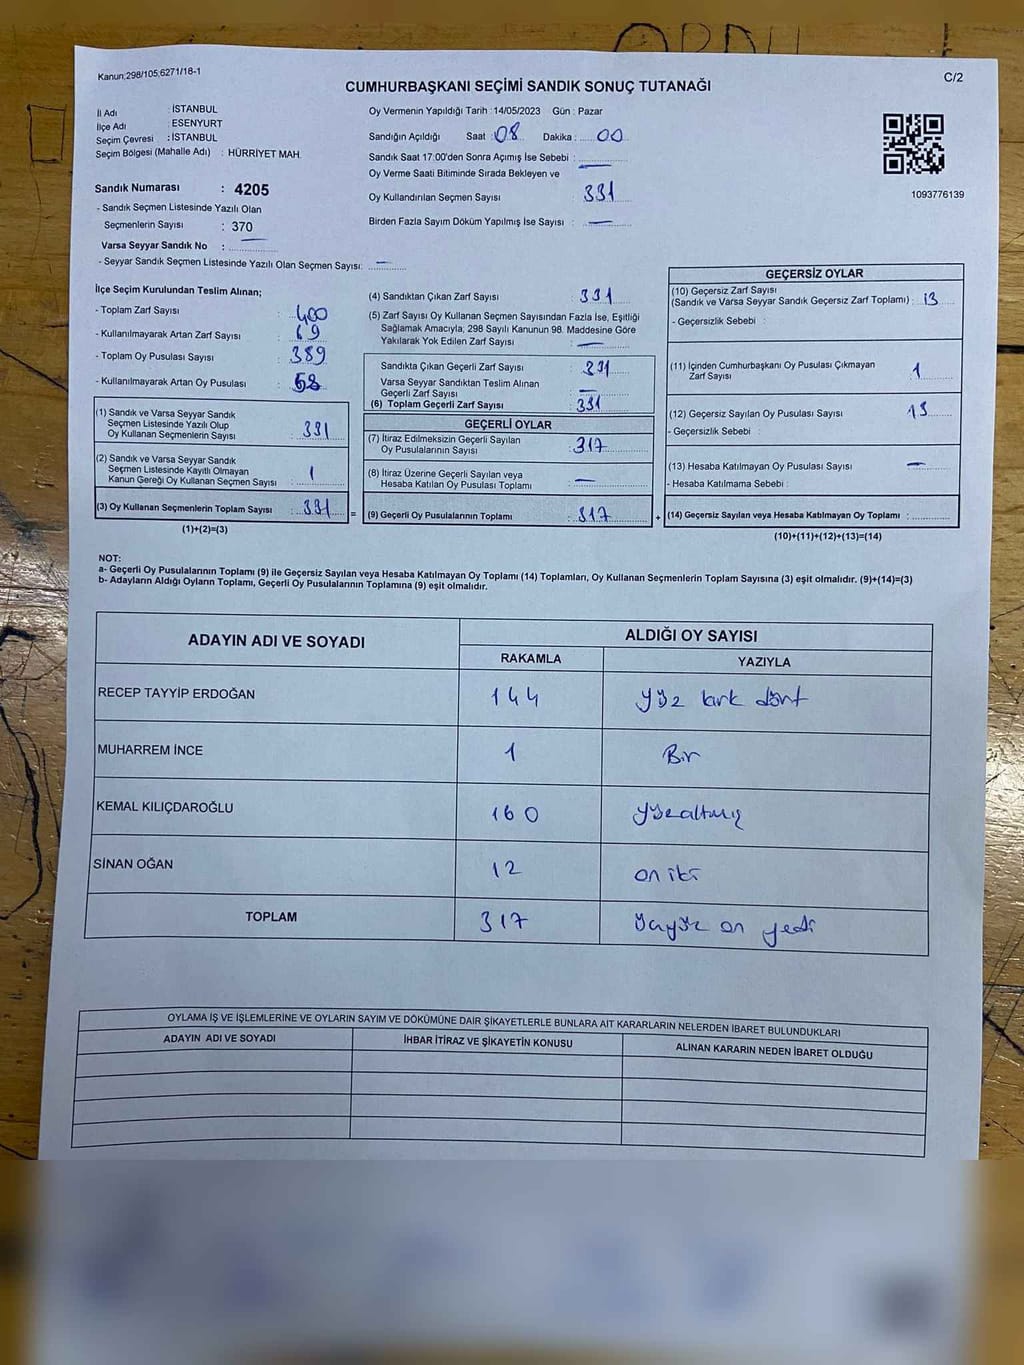 ORDU
Kanun:298/105;6271/18-1
C/2
CUMHURBAŞKANI SEÇİMİ SANDIK SONUÇ TUTANAĞI
İl Adı : İSTANBUL
İlçe Adı : ESENYURT
Seçim Çevresi : İSTANBUL
Seçim Bölgesi (Mahalle Adı) : HÜRRİYET MAH.
Sandık Numarası : 4205
- Sandık Seçmen Listesinde Yazılı Olan
Seçmenlerin Sayısı : 370
Varsa Seyyar Sandık No : —
- Seyyar Sandık Seçmen Listesinde Yazılı Olan Seçmen Sayısı: —
Oy Vermenin Yapıldığı Tarih : 14/05/2023 Gün : Pazar
Sandığın Açıldığı Saat : 08 Dakika : 00
Sandık Saat 17:00'den Sonra Açımış İse Sebebi : —
Oy Verme Saati Bitiminde Sırada Bekleyen ve
Oy Kullandırılan Seçmen Sayısı : 331
Birden Fazla Sayım Döküm Yapılmış İse Sayısı : —
1093776139
İlçe Seçim Kurulundan Teslim Alınan;
- Toplam Zarf Sayısı : 400
- Kullanılmayarak Artan Zarf Sayısı : 69
- Toplam Oy Pusulası Sayısı : 389
- Kullanılmayarak Artan Oy Pusulası : 58
(1) Sandık ve Varsa Seyyar Sandık
Seçmen Listesinde Yazılı Olup
Oy Kullanan Seçmenlerin Sayısı : 331
(2) Sandık ve Varsa Seyyar Sandık
Seçmen Listesinde Kayıtlı Olmayan
Kanun Gereği Oy Kullanan Seçmen Sayısı : 1
(3) Oy Kullanan Seçmenlerin Toplam Sayısı : 331 =
(1)+(2)=(3)
(4) Sandıktan Çıkan Zarf Sayısı : 331
(5) Zarf Sayısı Oy Kullanan Seçmen Sayısından Fazla İse, Eşitliği
Sağlamak Amacıyla, 298 Sayılı Kanunun 98. Maddesine Göre
Yakılarak Yok Edilen Zarf Sayısı : —
Sandıkta Çıkan Geçerli Zarf Sayısı : 331
Varsa Seyyar Sandıktan Teslim Alınan
Geçerli Zarf Sayısı : —
(6) Toplam Geçerli Zarf Sayısı : 331
GEÇERLİ OYLAR
(7) İtiraz Edilmeksizin Geçerli Sayılan
Oy Pusulalarının Sayısı : 317
(8) İtiraz Üzerine Geçerli Sayılan veya
Hesaba Katılan Oy Pusulası Toplamı : —
(9) Geçerli Oy Pusulalarının Toplamı : 317 +
GEÇERSİZ OYLAR
(10) Geçersiz Zarf Sayısı
(Sandık ve Varsa Seyyar Sandık Geçersiz Zarf Toplamı) : 13
- Geçersizlik Sebebi :
(11) İçinden Cumhurbaşkanı Oy Pusulası Çıkmayan
Zarf Sayısı : 1
(12) Geçersiz Sayılan Oy Pusulası Sayısı : 13
- Geçersizlik Sebebi :
(13) Hesaba Katılmayan Oy Pusulası Sayısı : —
- Hesaba Katılmama Sebebi :
(14) Geçersiz Sayılan veya Hesaba Katılmayan Oy Toplamı :
(10)+(11)+(12)+(13)=(14)
NOT:
a- Geçerli Oy Pusulalarının Toplamı (9) ile Geçersiz Sayılan veya Hesaba Katılmayan Oy Toplamı (14) Toplamları, Oy Kullanan Seçmenlerin Toplam Sayısına (3) eşit olmalıdır. (9)+(14)=(3)
b- Adayların Aldığı Oyların Toplamı, Geçerli Oy Pusulalarının Toplamına (9) eşit olmalıdır.
ADAYIN ADI VE SOYADI ALDIĞI OY SAYISI
RAKAMLA YAZIYLA
RECEP TAYYİP ERDOĞAN 144 Yüz kırk dört
MUHARREM İNCE 1 Bir
KEMAL KILIÇDAROĞLU 160 yüzaltmış
SİNAN OĞAN 12 on iki
TOPLAM 317 üçyüz on yedi
OYLAMA İŞ VE İŞLEMLERİNE VE OYLARIN SAYIM VE DÖKÜMÜNE DAİR ŞİKAYETLERLE BUNLARA AİT KARARLARIN NELERDEN İBARET BULUNDUKLARI
ADAYIN ADI VE SOYADI İHBAR İTİRAZ VE ŞİKAYETİN KONUSU ALINAN KARARIN NEDEN İBARET OLDUĞU